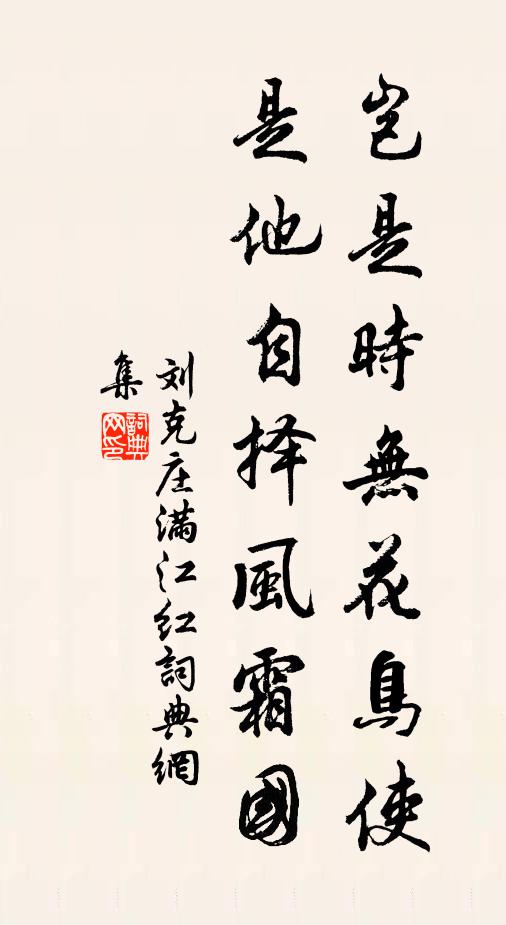 岂是時無花鳥使
是他自择風霜國
刘克庄满江红詞典網
集
詞典
网印